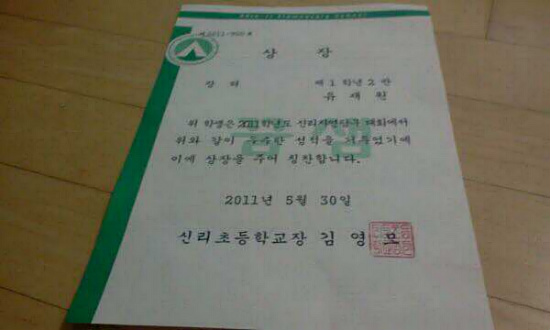 상 장
장 려
제 1 학년 2 반
유 재 원
위 학생은 2011학년도 신리자연탐구 대회에서
위와 같이 우수한 성적을 거두었기에
이에 상장을 주어 칭찬합니다.
2011년 5월 30일
신리초등학교장 김 영 모